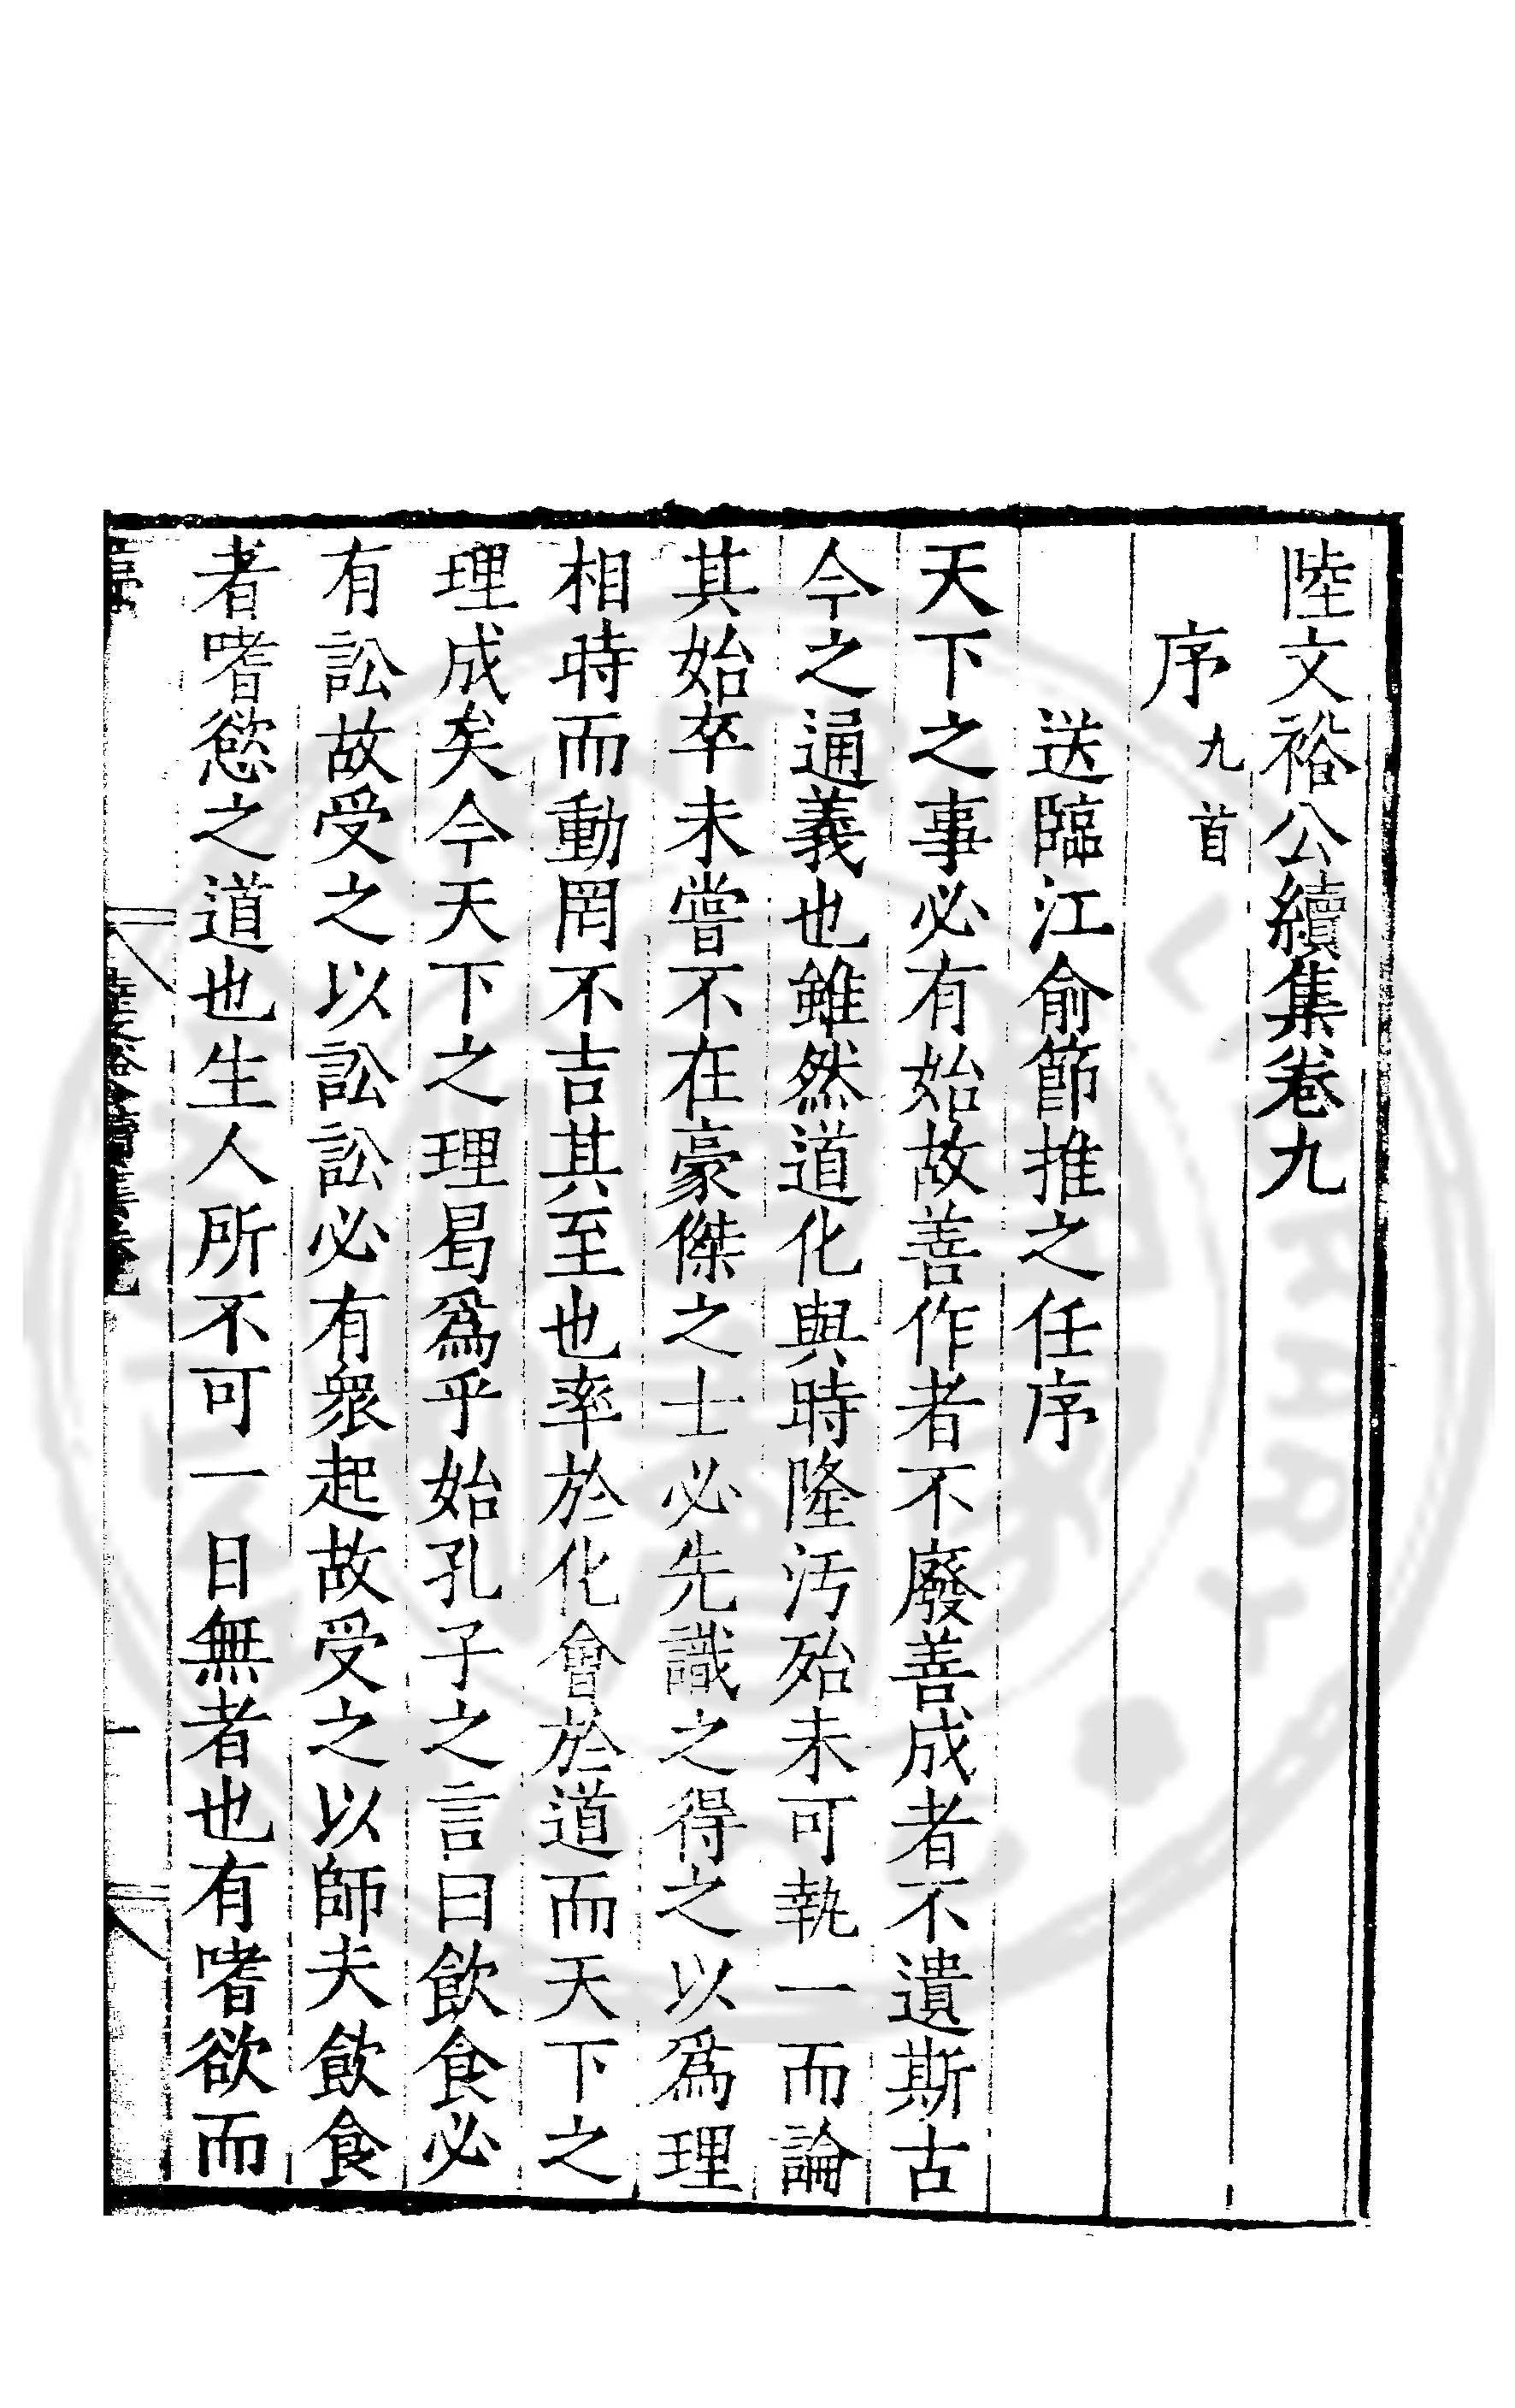 陸文裕公續集卷九
序九首
送臨江俞節推之任序
天下之事必有始故善作者不廢善成者不遺斯古
今之通義也雖然道化與時隆汚殆未可執一而論
其始卒未嘗不在豪傑之士必先識之得之以爲理
相時而動罔不吉其至也率於化會於道而天下之
理成矣今天下之理曷爲乎始孔子之言曰飲食必
有訟故受之以訟訟必有衆起故受之以師夫飲食
者嗜慾之道也生人所不可一日無者也有嗜欲而